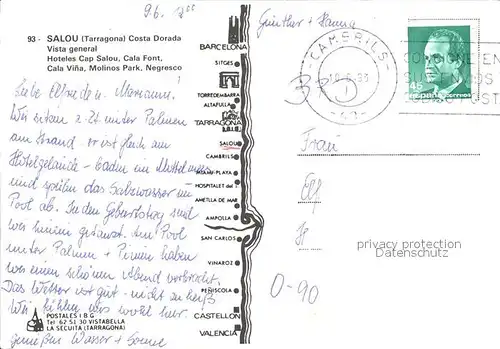 9.6.
93 - SALOU (Tarragona) Costa Dorada
Vista general
Hoteles Cap Salou, Cala Font,
Cala Viña, Molinos Park, Negresco
Günther + Hanna
Liebe u. Marianne.
Wir sitzen z. Zt unter Palmen
am Strand. er ist gleich am
Hotelgelände - baden im Mittelmeer
und spülen das Salzwasser im
Pool ab. In den Geburtstag sind
wir hinein getanzt. Am Pool
unter Palmen + Pinien haben
wir einen schönen Abend verbracht.
Das Wetter ist gut - nicht zu heiß
Wir fühlen uns wohl hier.
genießen Wasser + Sonne
POSTALES I B G
Tel 62 51 30 VISTABELLA
LA SECUITA (TARRAGONA)
BARCELONA
SITGES
TORREDEMBARRA
ALTAFULLA
TARRAGONA
SALOU
CAMBRILS
MIAMI-PLAYA
HOSPITALET del
AMETLLA DE MAR
AMPOLLA
SAN CARLOS
VINAROZ
PEÑISCOLA
CASTELLON
VALENCIA
CAMBRILS
45
correos
Frau
privacy protection
Datenschutz
0-90